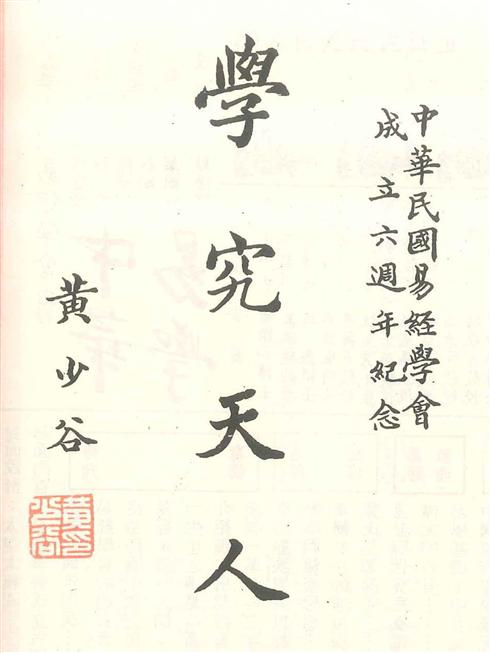 中華民國易經學會
成立六週年紀念
學究天人
黃少谷
黃少谷印